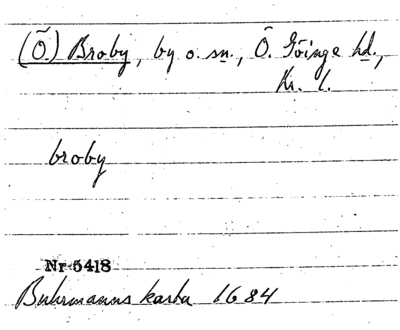 (Ö.) Broby, by o. sn., Ö. Göinge hd.,
Kr. l.
broby
Nr 5418
Buhrmanns karta 1684